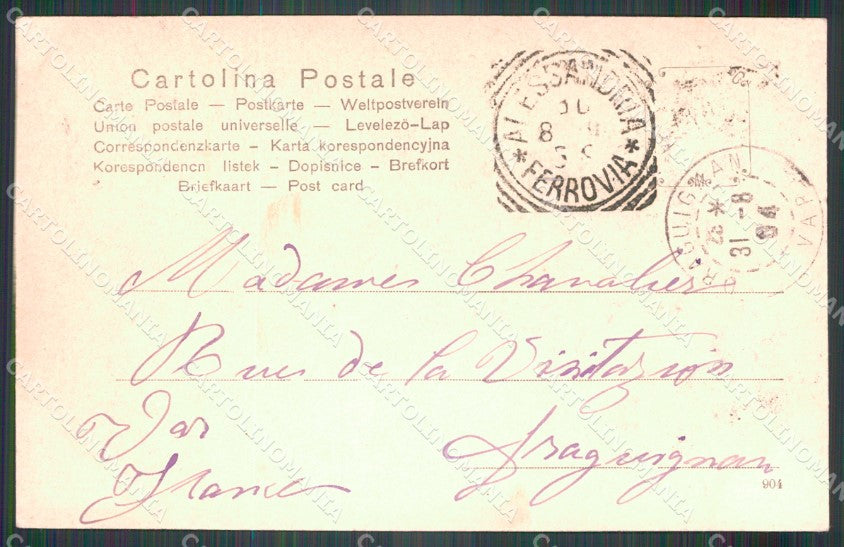 Cartolina Postale
Carte Postale — Postkarte — Weltpostverein
Union postale universelle — Levelezö-Lap
Correspondenzkarte - Karta korespondencyjna
Korespondencn listek - Dopisnice - Brefkort
Briefkaart — Post card
* ALESSANDRIA *
FERROVIA
DRAGUIGNAN
VAR
31 -8
04
Madames Chavalier
Rue de la Visitazion
Var
Draguignan
France
904
CARTOLINOMANIA